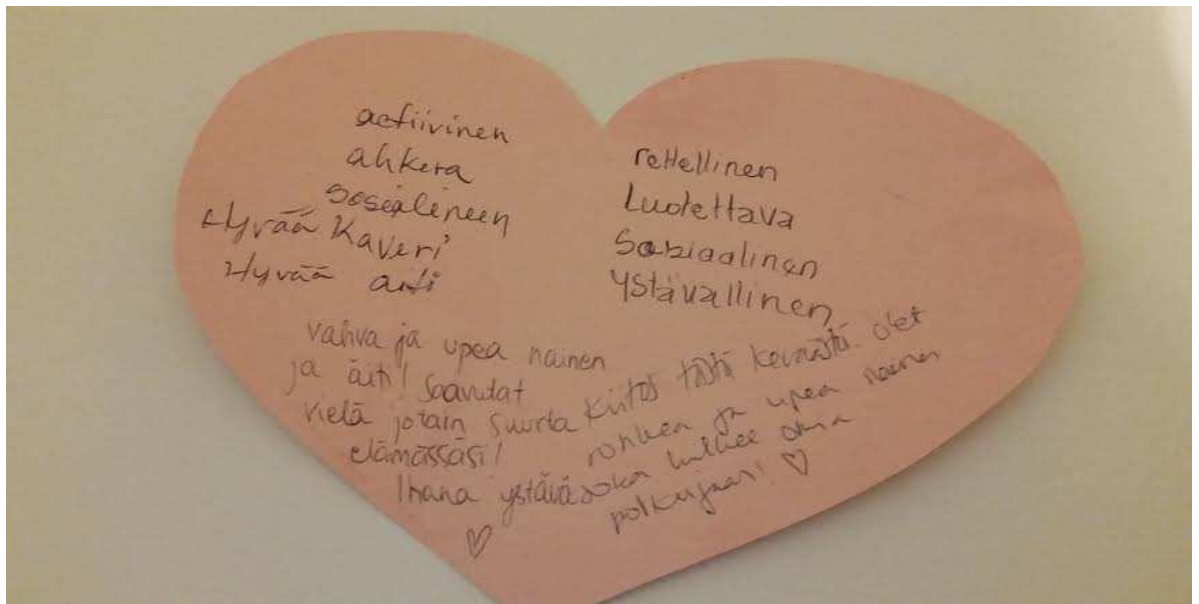 actiivinen
ahkera
Sosialineen
Hyvää Kaveri
Hyvää äiti
rehellinen
Luotettava
Sosiaalinen
ystävällinen
vahva ja upea nainen
ja äiti! Saavutat
vielä jotain suurta
elämässäsi!
Ihana ystävä
♡
Kiitos tästä keväästä. Olet
rohkea ja upea nainen
joka kulkee omia
polkujaan! ♡